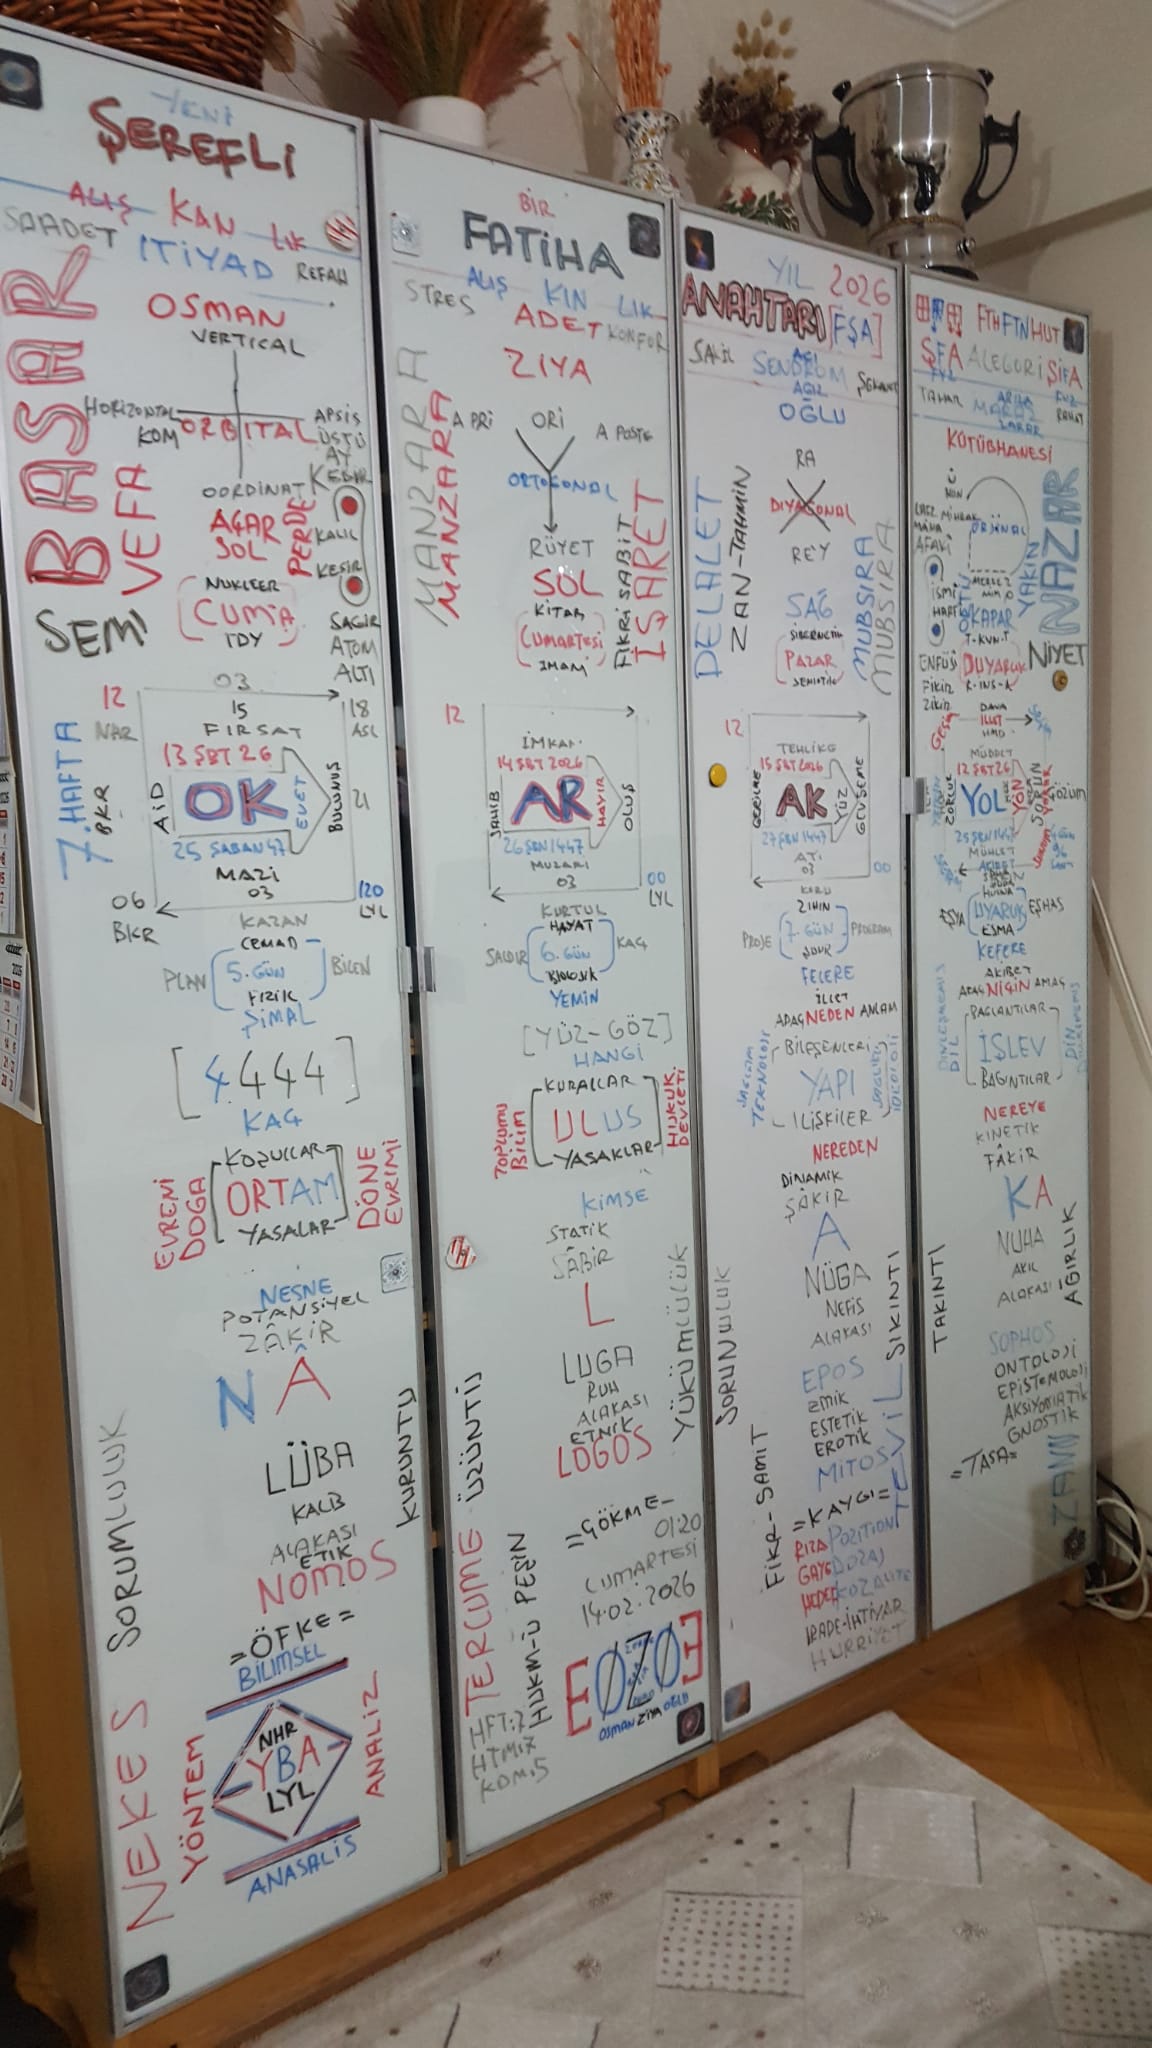 YENİ
ŞEREFLİ
ALIŞ KAN LIK
SAADET İTİYAD REFAH
OSMAN
VERTICAL
BASAR
HORIZONTAL
KOM
ORBITAL
APSİS
ÜSTÜ
AY
KEDİR
OORDİNAT
VEFA
AÇAR
SOL
PERDE
KALIL
KESİR
NUKLEER
CUMA
TDY
SEMİ
SAGIR
ATOM
ALTI
12
03
15
FIRSAT
18
ASL
NAR
7. HAFTA
BKR
13 ŞBT 26
AİD
OK
EVET
BULUNUŞ
21
25 ŞABAN 47
MAZİ
03
06
BKR
LYL
KAZAN
CEMAD
PLAN
5. GÜN
BİLEN
FİZİK
ŞİMAL
[4444]
KAÇ
KOŞULLAR
EVRENİ
DOĞA
ORTAM
DÖNE
EVRİMİ
YASALAR
NESNE
POTANSİYEL
ZÂKİR
N A
LÜBA
KALB
ALAKASI
ETİK
NOMOS
SORUMLULUK
KURUNTU
=ÖFKE=
BİLİMSEL
NEKES
YÖNTEM
NHR
YBA
LYL
ANALİZ
ANASALIS
BİR
FATİHA
ALIŞ KIN LIK
STRES ADET KONFOR
ZİYA
MANZARA
MANZARA
A PRİ
ORİ
A POSTE
ORTOGONAL
RÜYET
SOL
KİTAB
CUMARTESİ
IMAM
FİKRİ SABİT
İŞARET
12
İMKAN
14 ŞBT 2026
SAHİB
AR
HAYIR
OLUŞ
26 ŞBN 1447
MUZARİ
03
00
LYL
KURTUL
HAYAT
SALDIR
6. GÜN
KAÇ
BİOLOJİK
YEMİN
[YÜZ-GÖZ]
HANGİ
KURALLAR
TOPLUMU
BİLİM
ULUS
HUKUK
DEVLETİ
YASAKLAR
KİMSE
STATİK
SÂBİR
L
LUGA
RUH
ALAKASI
ETNİK
LOGOS
YÜKÜMLÜLÜK
ÜZÜNTÜ
TERCÜME
HÜKM-Ü PEŞİN
=GÖKME=
01:20
CUMARTESİ
14.02.2026
HFT:7
OSMAN ZİYA OĞLU
YIL 2026
ANAHTARI [FŞA]
SENDROM
AĞIZ
OĞLU
RA
DİYAGONAL
REY
DELALET
ZAN-TAHMİN
SAĞ
SİBERNETİK
PAZAR
SEMİOTİK
MUBSIRA
MUBSIRA
12
TEHLİKE
15 ŞBT 2026
AK
YÜZ
GEVŞEME
27 ŞBN 1447
ATİ
03
00
KORU
ZİHİN
PROJE
7. GÜN
PROGRAM
FELERE
İLLET
ADAÇ NEDEN ANLAM
BİLEŞENLERİ
TEKNOLOJİ
YAPI
İLİŞKİLER
NEREDEN
DİNAMİK
ŞÂKİR
A
NÜGA
NEFİS
ALAKASI
SORUNLULUK
SIKINTI
EPOS
EMİK
ESTETİK
EROTİK
MİTOS
TEVİL
FİKR-SAMİT
=KAYGI=
RIZA POZİTİON
GAYE DOZAJ
HEDEF KOZALİTE
İRADE-İHTİYAR
HÜRRİYET
FTH FTN HUT
ŞFA ALEGORİ ŞİFA
KÜTÜBHANESİ
ORJİNAL
AFAKİ
İSMİ
YAKIN
NAZAR
KAPAR
DUYARUK
ENFÜSİ
FİKİR
ZİKİR
NİYET
DAVA
İLLET
MÜDDET
12 ŞBT 26
YOL
YÖN
SORUN
ÇÖZÜM
25 ŞBN 1447
MÜHLET
EŞYA
UYARUK
EŞHAS
ESMA
KEFERE
AKİBET
NİÇİN AMAÇ
BAĞLANTILAR
İŞLEV
BAĞINTILAR
NEREYE
KİNETİK
FÂKİR
KA
NUHA
AKIL
ALAKASI
TAKINTI
AĞIRLIK
SOPHOS
ONTOLOJİ
EPİSTEMOLOJİ
AKSİYOMATİK
GNOSTİK
=TASA=
ZANN